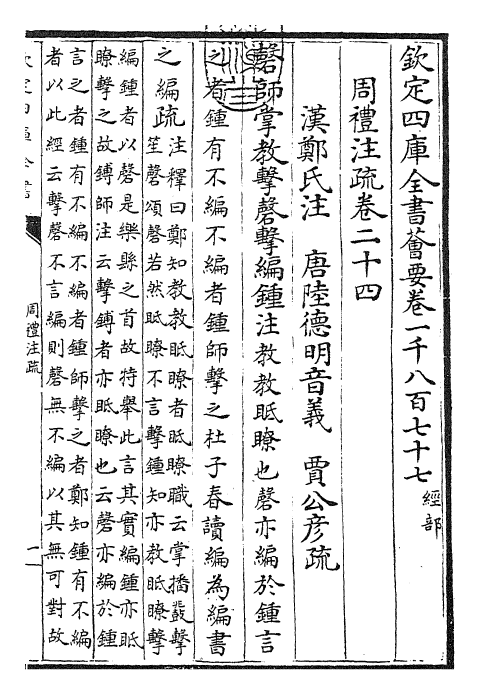 欽定四庫全書薈要卷一千八百七十七 經部
周禮注疏卷二十四
漢鄭氏注 唐陸德明音義 賈公彥疏
磬師掌教擊磬擊編鍾注教教眡瞭也磬亦編於鍾言
之者鍾有不編不編者鍾師擊之杜子春讀編為編書
之編疏
注釋曰鄭知教教眡瞭者眡瞭職云掌播鼗擊
笙磬頌磬若然眡瞭不言擊鍾知亦教眡瞭擊
編鍾者以磬是樂縣之首故特舉此言其實編鍾亦眡
瞭擊之故鎛師注云擊鎛者亦眡瞭也云磬亦編於鍾
言之者鍾有不編不編者鍾師擊之者鄭知鍾有不編
者以此經云擊磬不言編則磬無不編以其無可對故
欽定四庫全書
周禮注疏
一